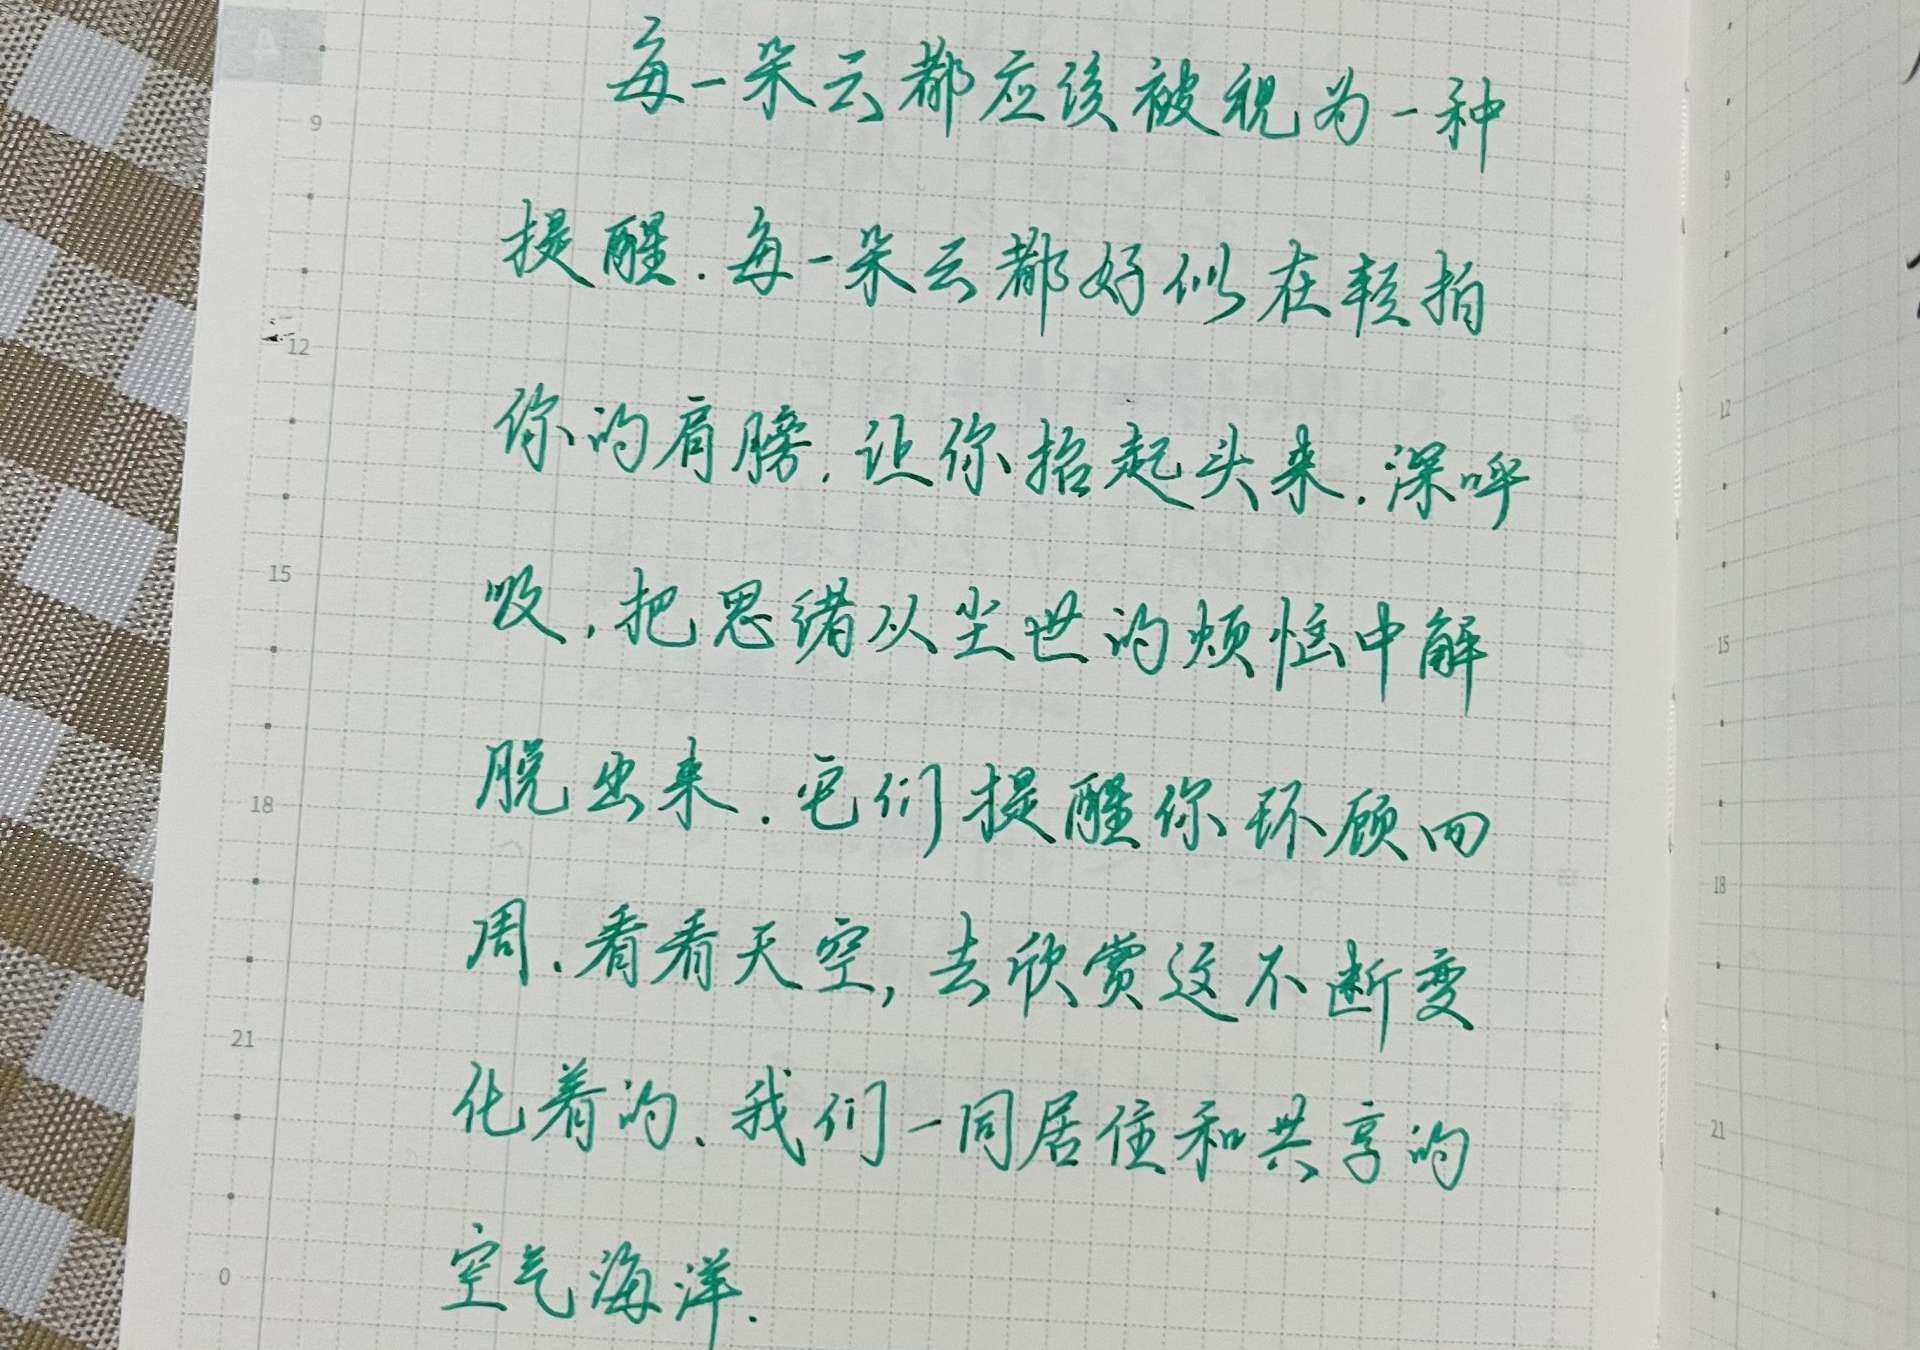 每一朵云都应该被视为一种
提醒.每一朵云都好似在轻拍
你的肩膀.让你抬起头来.深呼
吸,把思绪从尘世的烦恼中解
脱出来.它们提醒你环顾四
周.看看天空,去欣赏这不断变
化着的、我们一同居住和共享的
空气海洋.
9
12
15
18
21
0
9
12
15
18
21